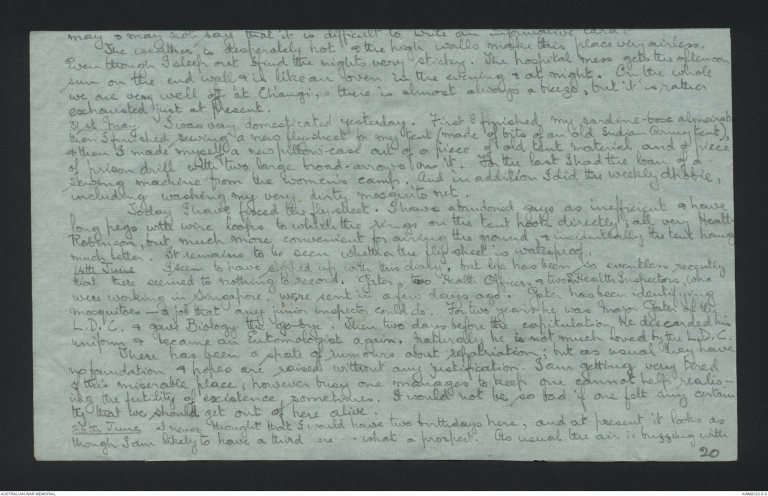 may & may not say that it is difficult to write an informative card.
The weather is desperately hot & the high walls make this place very airless.
Even though I sleep out I find the nights very sticky. The hospital mess gets the afternoon
sun on the end wall & is like an oven in the evening & at night. On the whole
we are very well off at Changi, & there is almost always a breeze, but it is rather
exhausted just at present.
31st May I was very domesticated yesterday. First I finished my sardine-box almeirah
then I finished sewing a new flysheet for my tent (made of bits of an old Indian Army tent),
& then I made myself a new pillow-case out of a piece of old tent material and a piece
of prison drill with two large broad-arrows on it. For the last I had the loan of a
sewing machine from the women's camp. And in addition I did the weekly dhobie,
including washing my very dirty mosquito net.
Today I have fixed the flysheet. I have abandoned guys as inefficient & have
long pegs with wire loops to which the rings on the tent hook directly; all very Heath
Robinson, but much more convenient for airing the ground & incidentally the tent hangs
much better. It remains to be seen whether the fly sheet is waterproof.
14th June I seem to have slipped up with this diary, but life has been so eventless recently
that there seemed to nothing to record. Gater, two Health Officers & two Health Inspectors, who
were working in Singapore, were sent in a few days ago. Gater has been identifying
mosquitoes - a job that any junior inspector could do. For two years he was Major Gater of the
L.D.C. & gave Biology the go-bye. Then two days before the capitulation he discarded his
uniform & became an Entomologist again. Naturally he is not much loved by the L.D.C.
There has been a spate of rumours about repatriation, but as usual they have
no foundation & hopes are raised without any justification. I am getting very tired
of this miserable place; however busy one manages to keep one cannot help realis-
ing the futility of existence sometimes. It would not be so bad if one felt any certain
ty that we should get out of here alive.
I never thought that I would have two birthdays here, and at present it looks as
though I am likely to have a third one - what a prospect. As usual the air is buzzing with
20
AUSTRALIAN WAR MEMORIAL